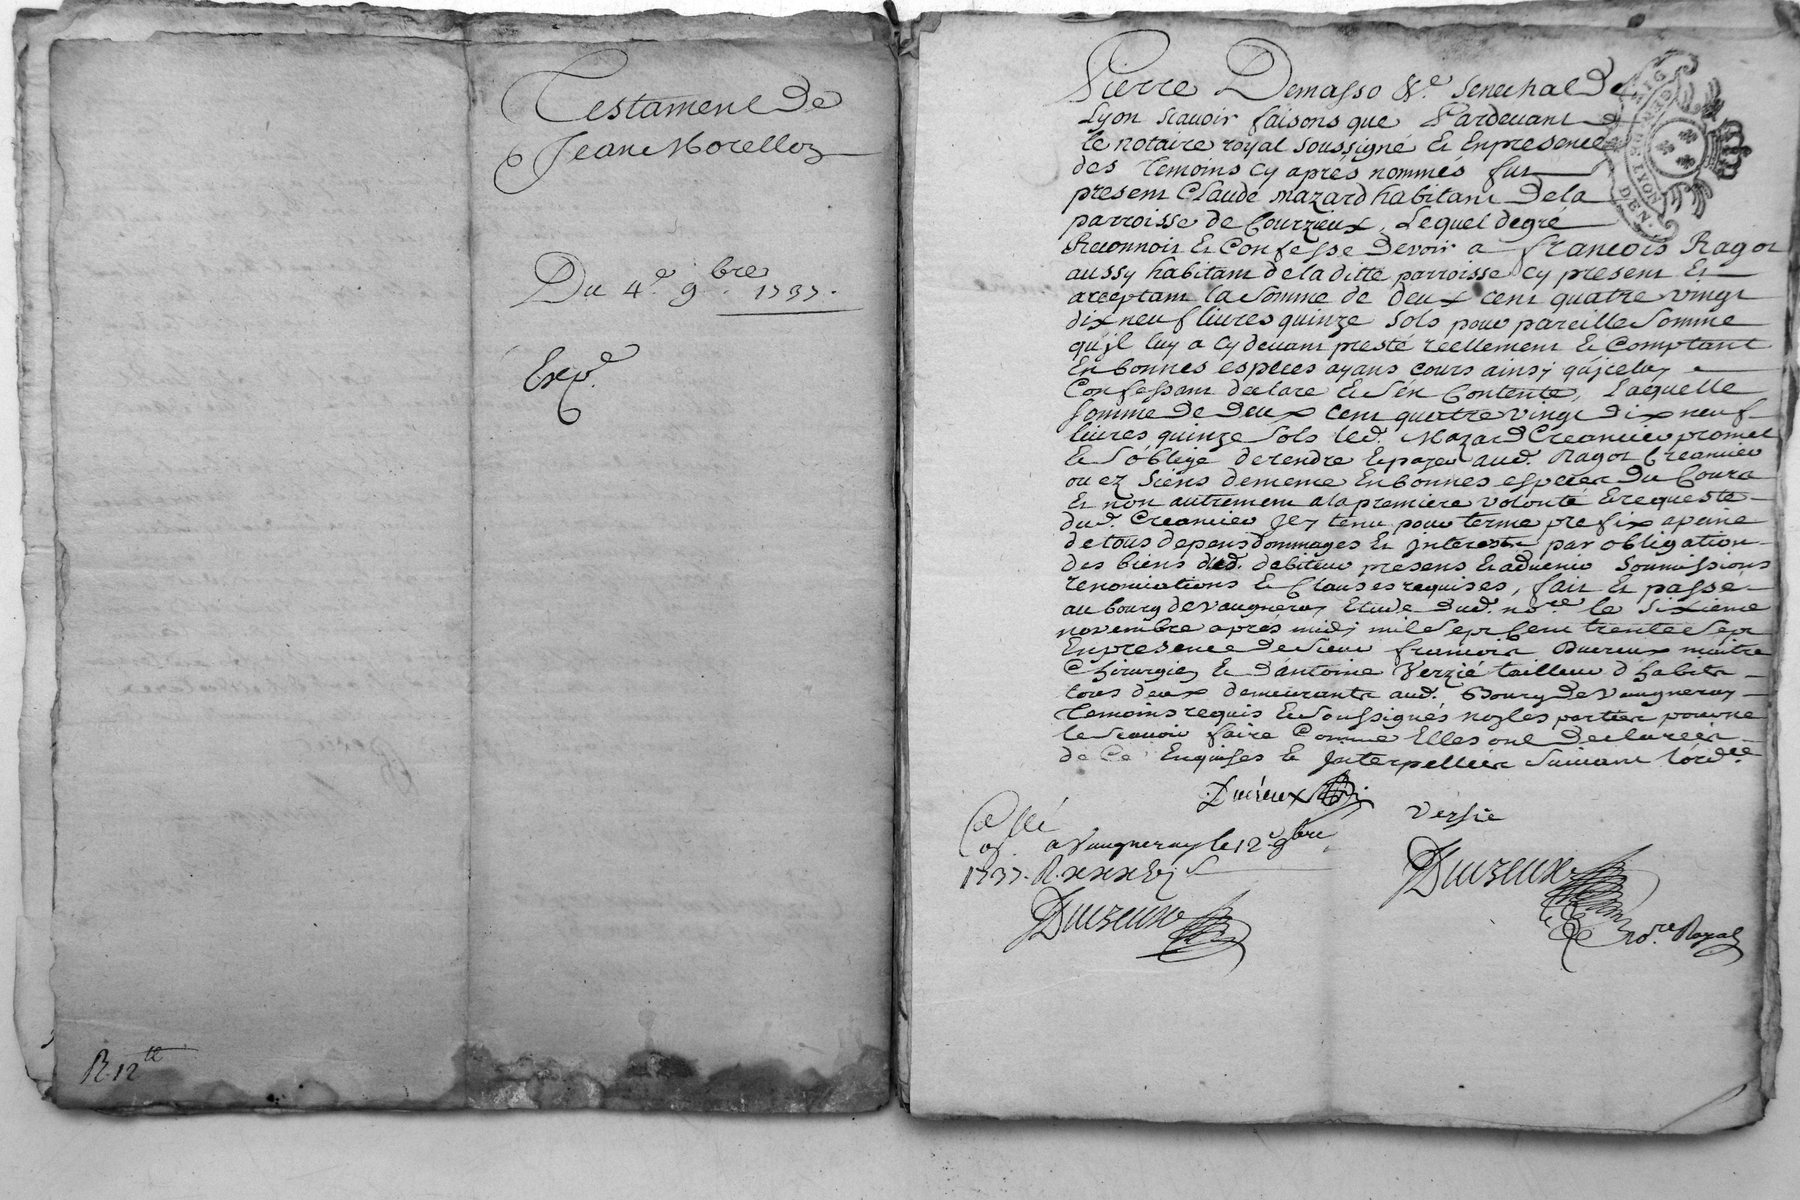 Testament de
Jean Morellon
Du 4.e 9.bre 1737.
Exp.e
R. 12 tt
Pierre Demasso &.e Senechal de
Lyon scavoir faisons que Pardevant
le notaire royal soussigné et en presence
des temoins cy aprés nommés fut
present Claude Mazard habitant de la
parroisse de Courzieux, Lequel de gré
Reconnoit et Confesse devoir a françois Ragot
aussy habitant de la ditte parroisse cy present et
acceptant la somme de deux cent quatre vingt
dix neuf livres quinze sols pour pareille somme
qu'jl luy a cy devant presté réellement et Comptant
En bonnes especes ayans cours ainsy qu'jceluy
Confessant declare et s'en Contente, Laquelle
somme de deux cent quattre vingt dix neuf
livres quinze sols led. Mazard Creancier promet
et s'oblige de rendre et payer aud. Ragot Creancier
ou ez siens de meme en bonnes especes du Cours
et non autrement a la premiere volonté et requeste
dud. Creancier jey tenu pour terme prefix a peine
de tous depens dommages et jnterests par obligation
des biens dud. debiteur presens et advenir soumissions
renonciations et Clauses requises, fait et passé
au bourg de vaugneray Etude dud. no.re le sixieme
novembre aprés midj mil sept Cent trente sept
En presence de sieur françois Ducreux maitre
Chirurgien et d'antoine Verzié tailleur d'habits
tous deux demeurants aud. Bourg de Vaugneray
temoins requis et soussignés no les parties pour ne
le scavoir faire Comme Elles ont declarées
de Ce Enquises et jnterpellées suivant l'ord.ce
Ducreux
Versie
a Vaugneray le 12.e 9.bre
1737. R.
DuCreux
DuCreux
no.re Royal
GEN DE LYON
DEN.